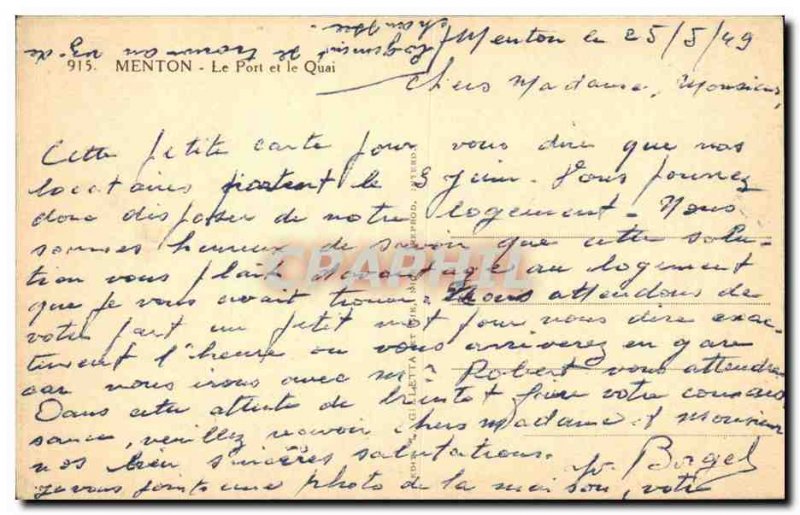 Menton le 25/5/49
915. MENTON - Le Port et le Quai
Chers Madame, Monsieur,
Cette petite carte pour vous dire que nos
locataires partent le 3 Juin. Vous pourrez
donc disposer de notre logement. Nous
sommes heureux de savoir que cette solu-
tion vous plait davantage au logement
que je vous avait trouver. Nous attendons de
votre part un petit mot pour nous dire exac-
tement l'heure ou vous arriverez en gare
car nous irons avec Mr Robert vous attendre
Dans cette attente de bientot faire votre connais-
sance, veuillez recevoir chers Madame et Monsieur
nos bien sincères salutations.
je vous joints une photo de la maison, votre
logement se trouve au rez de
chaussée.
CPARAMA